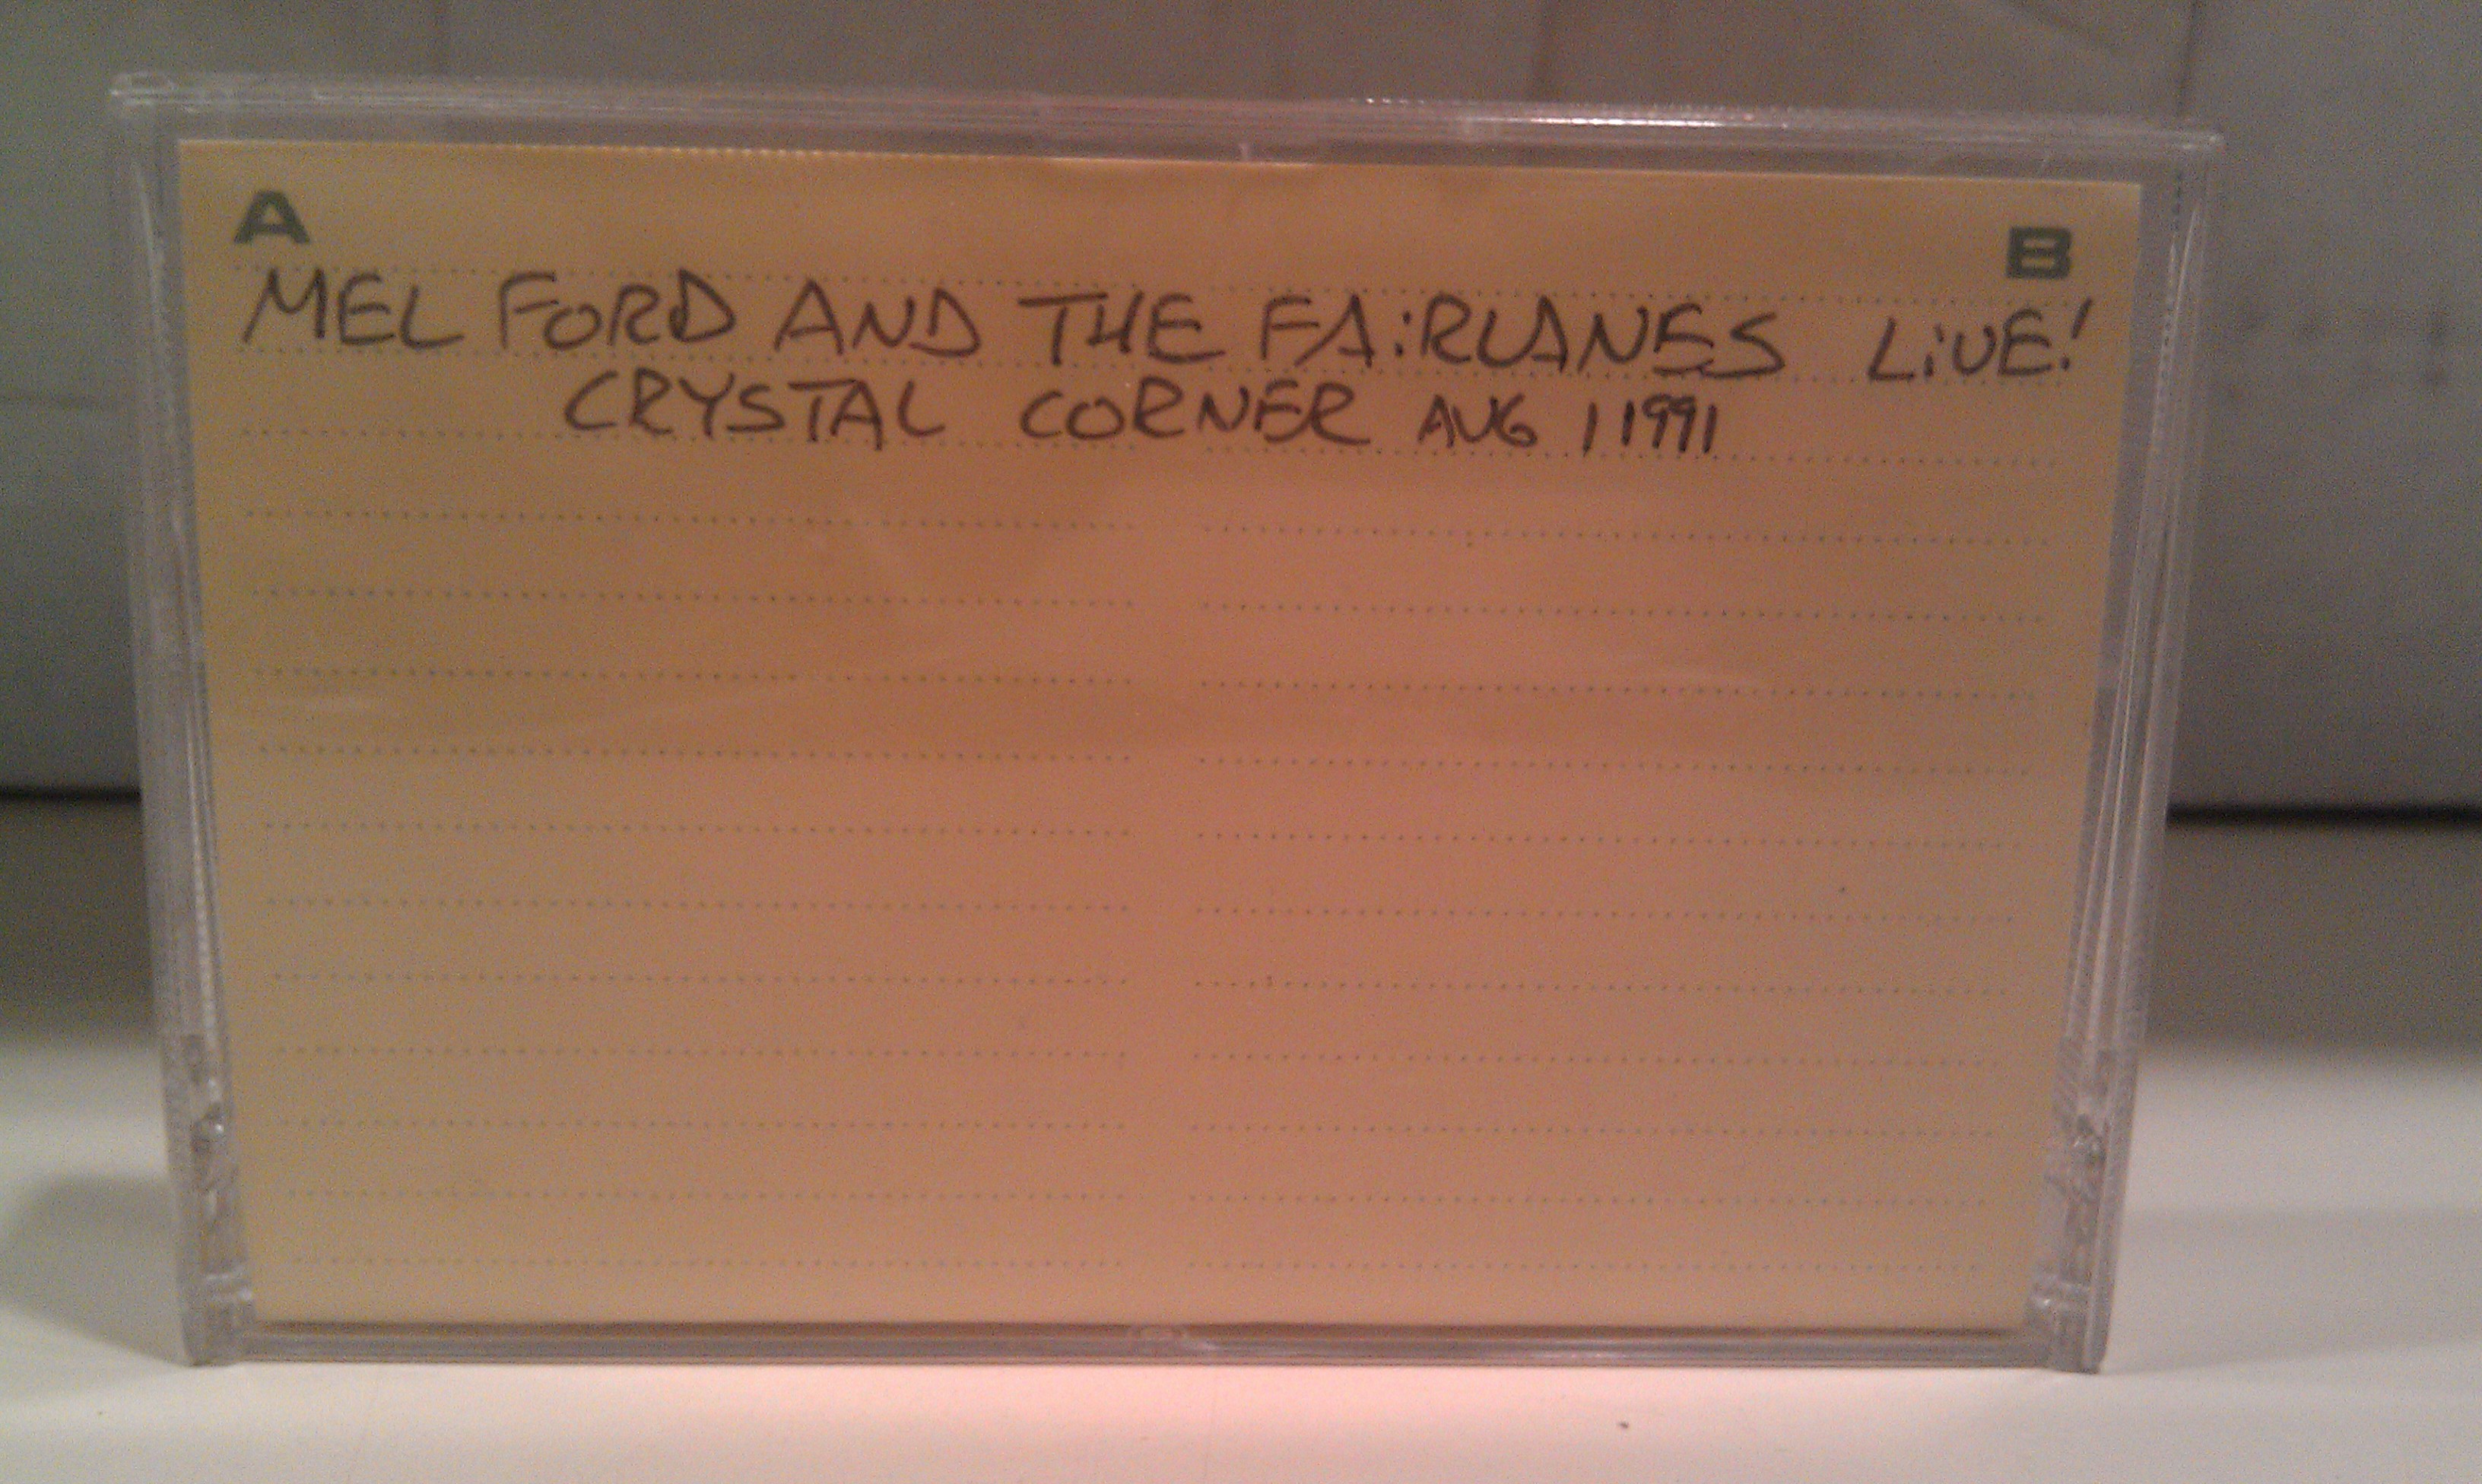 A B
MEL FORD AND THE FAiRLANES LiVE!
CRYSTAL CORNER AUG 1 1991